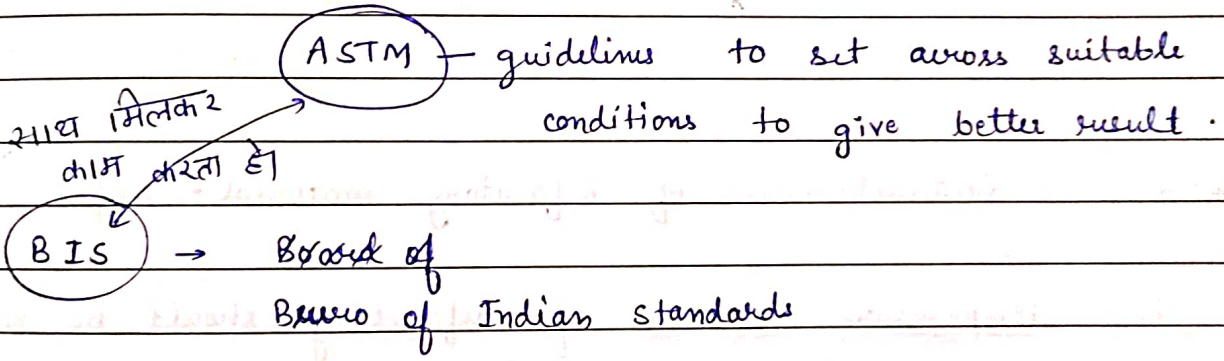 ASTM - guidelines to set across suitable
conditions to give better result.
साथ मिलकर
काम करता है।
BIS → Board of
Bureo of Indian standards